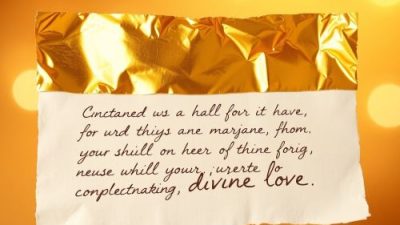 Cınctaned ws a hall fovr it have,
for urd thiys ane marjane, fhom.
your shull on heer of thine forig,
neuse whill your urerte lo
conplectnaking, divine love.